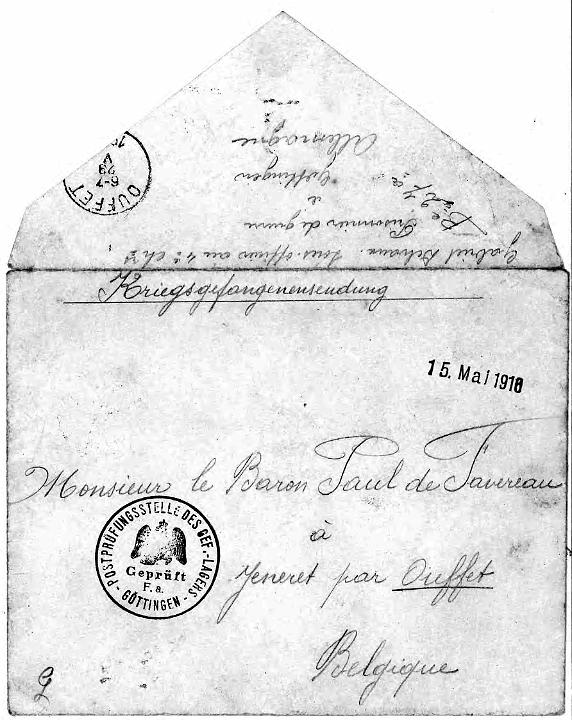 Gabriel Sous-officier au 4e ch
Prisonnier de guerre
à
Goettingen
Allemagne
OUFFET
6-7
23
V
Kriegsgefangenensendung
15. Mai 1916
Monsieur le Baron Paul de Favereau
à
Jeneret par Ouffet
Belgique
POSTPRÜFUNGSSTELLE DES GEF.-LAGERS
Geprüft
F. a.
- GÖTTINGEN -
G